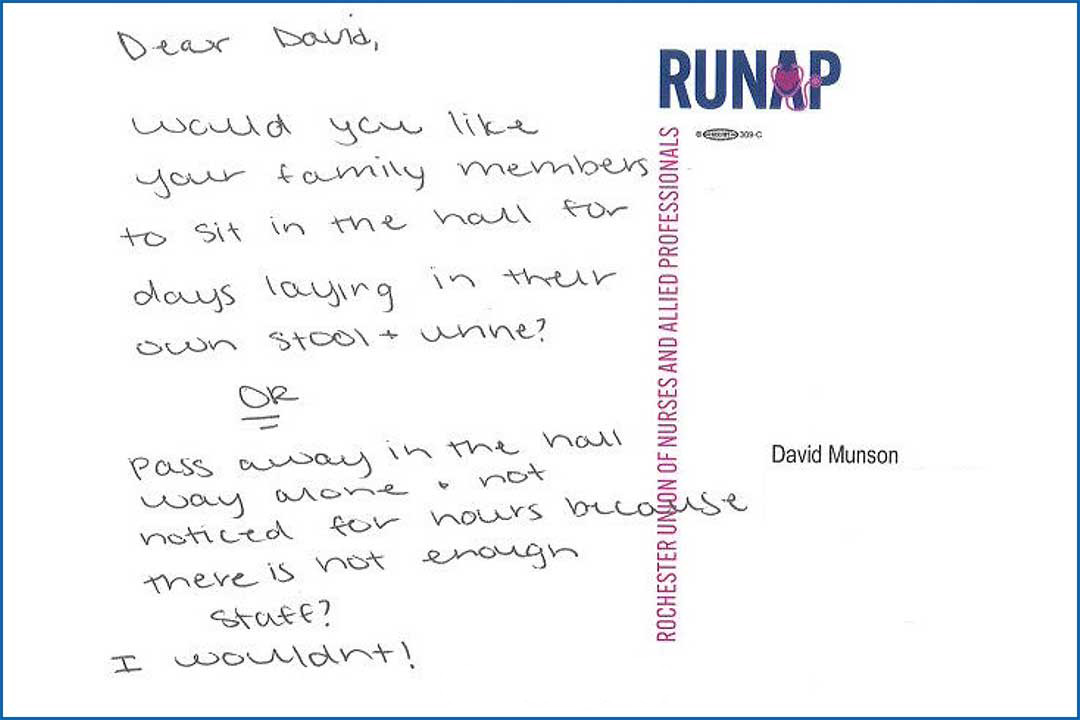 Dear David,
would you like
your family members
to sit in the hall for
days laying in their
own stool + urine?
OR
pass away in the hall
way alone + not
noticed for hours because
there is not enough
staff?
I wouldnt!
RUNAP
309-C
ROCHESTER UNION OF NURSES AND ALLIED PROFESSIONALS
David Munson